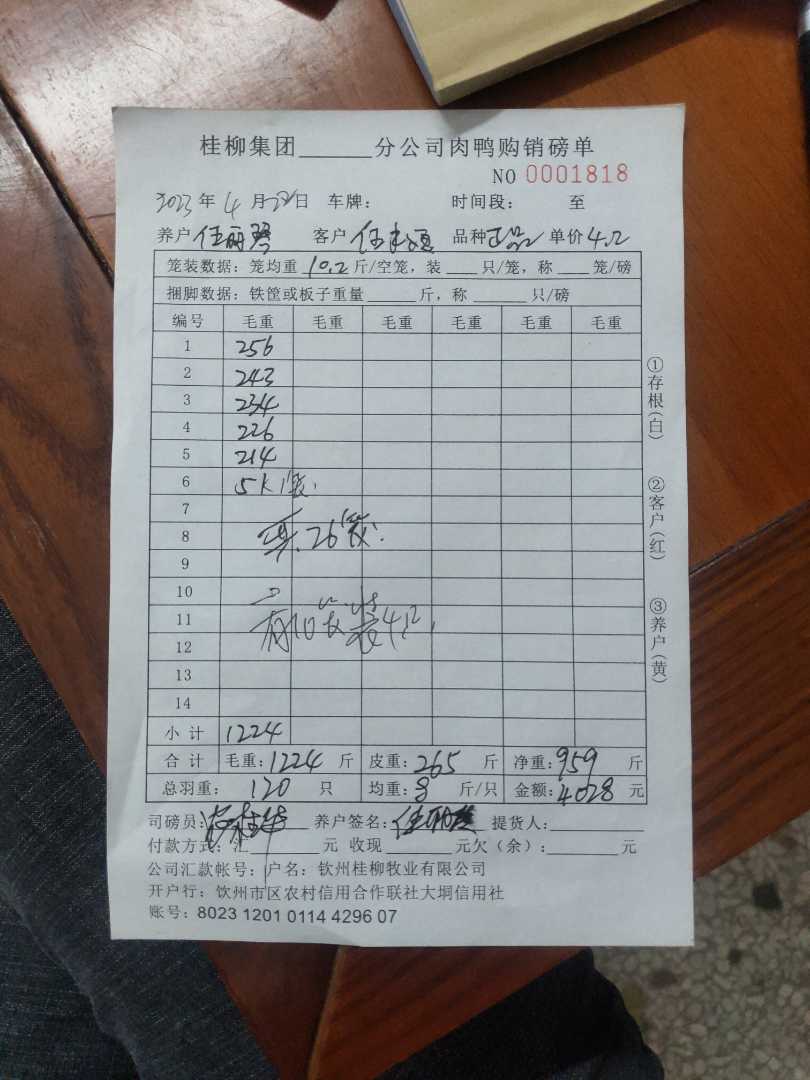 桂柳集团______分公司肉鸭购销磅单
NO 0001818
2023年4月28日 车牌： 时间段： 至
养户 任丽琴 客户 品种 正品 单价 4.2
笼装数据：笼均重 10.2 斤/空笼，装___只/笼，称___笼/磅
捆脚数据：铁筐或板子重量_____斤，称_____只/磅
编号 毛重 毛重 毛重 毛重 毛重 毛重
1 256
2 243
3 234
4 226
5 214
6
7
8 26
9
10
11 4.2
12
13
14
小计 1224
合计 毛重：1224 斤 皮重：265 斤 净重：959 斤
总羽重： 120 只 均重：8 斤/只 金额：4028 元
司磅员： 养户签名： 提货人：
付款方式：汇______元 收现______元欠（余）：______元
公司汇款帐号：户名：钦州桂柳牧业有限公司
开户行：钦州市区农村信用合作联社大垌信用社
账号：8023 1201 0114 4296 07
①存根（白）
②客户（红）
③养户（黄）